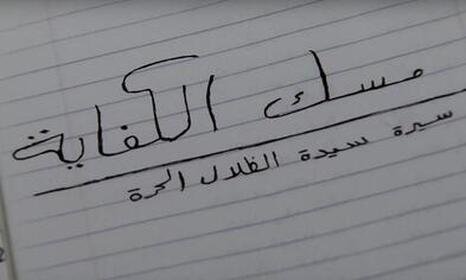 مسك الكفاية
سيرة سيدة الظلال الحرة